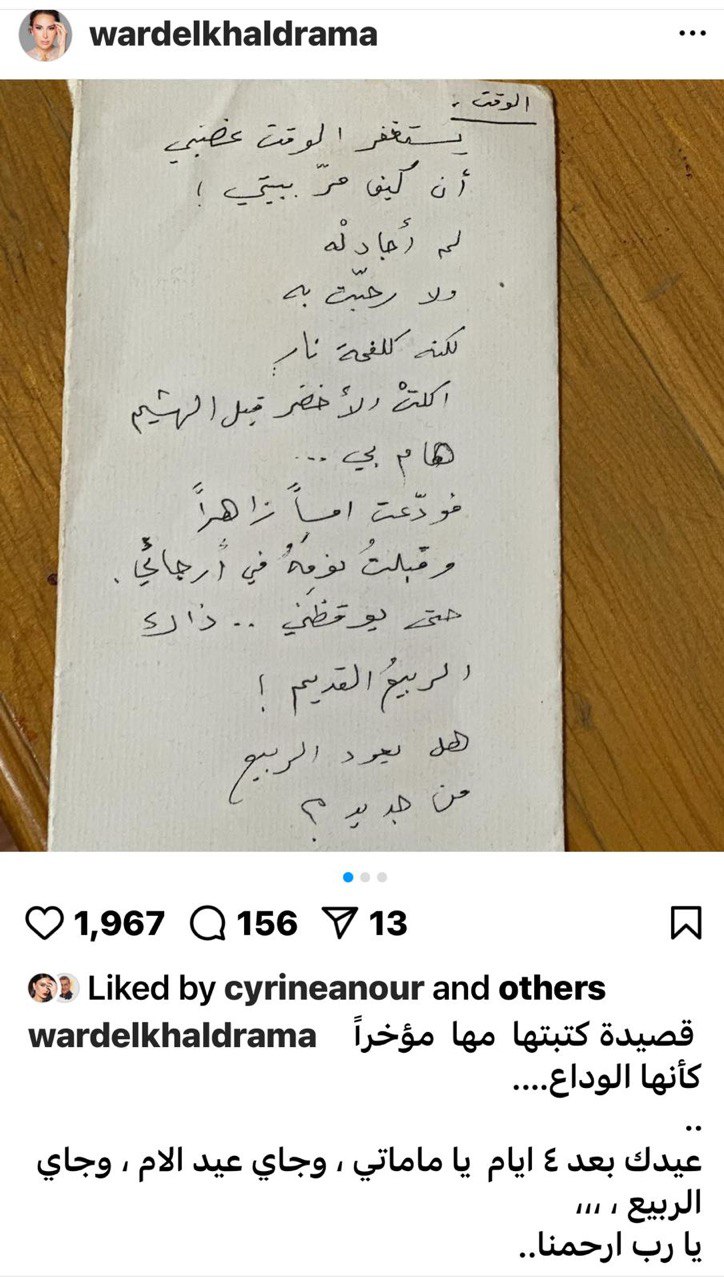 wardelkhaldrama
الوقت :
يستغفر الوقت غضبي
أن كيف مرّ ببيتي !
لم أجادلْه
ولا رحبّت به
لكنه كلفحة نارٍ
اكلتْ الأخضر قبل الهشيم
هام بي ...
فودّعت امساً زاهراً
وقبلتُ نومَهُ في أرجائي .
حتى يوقظني .. ذاك
الربيعُ القديم !
هل يعود الربيع
من جديد ؟
1,967 156 13
Liked by cyrineanour and others
wardelkhaldrama قصيدة كتبتها مها مؤخراً
كأنها الوداع....
..
عيدك بعد ٤ ايام يا ماماتي ، وجاي عيد الام ، وجاي
الربيع ، ،،،
يا رب ارحمنا..